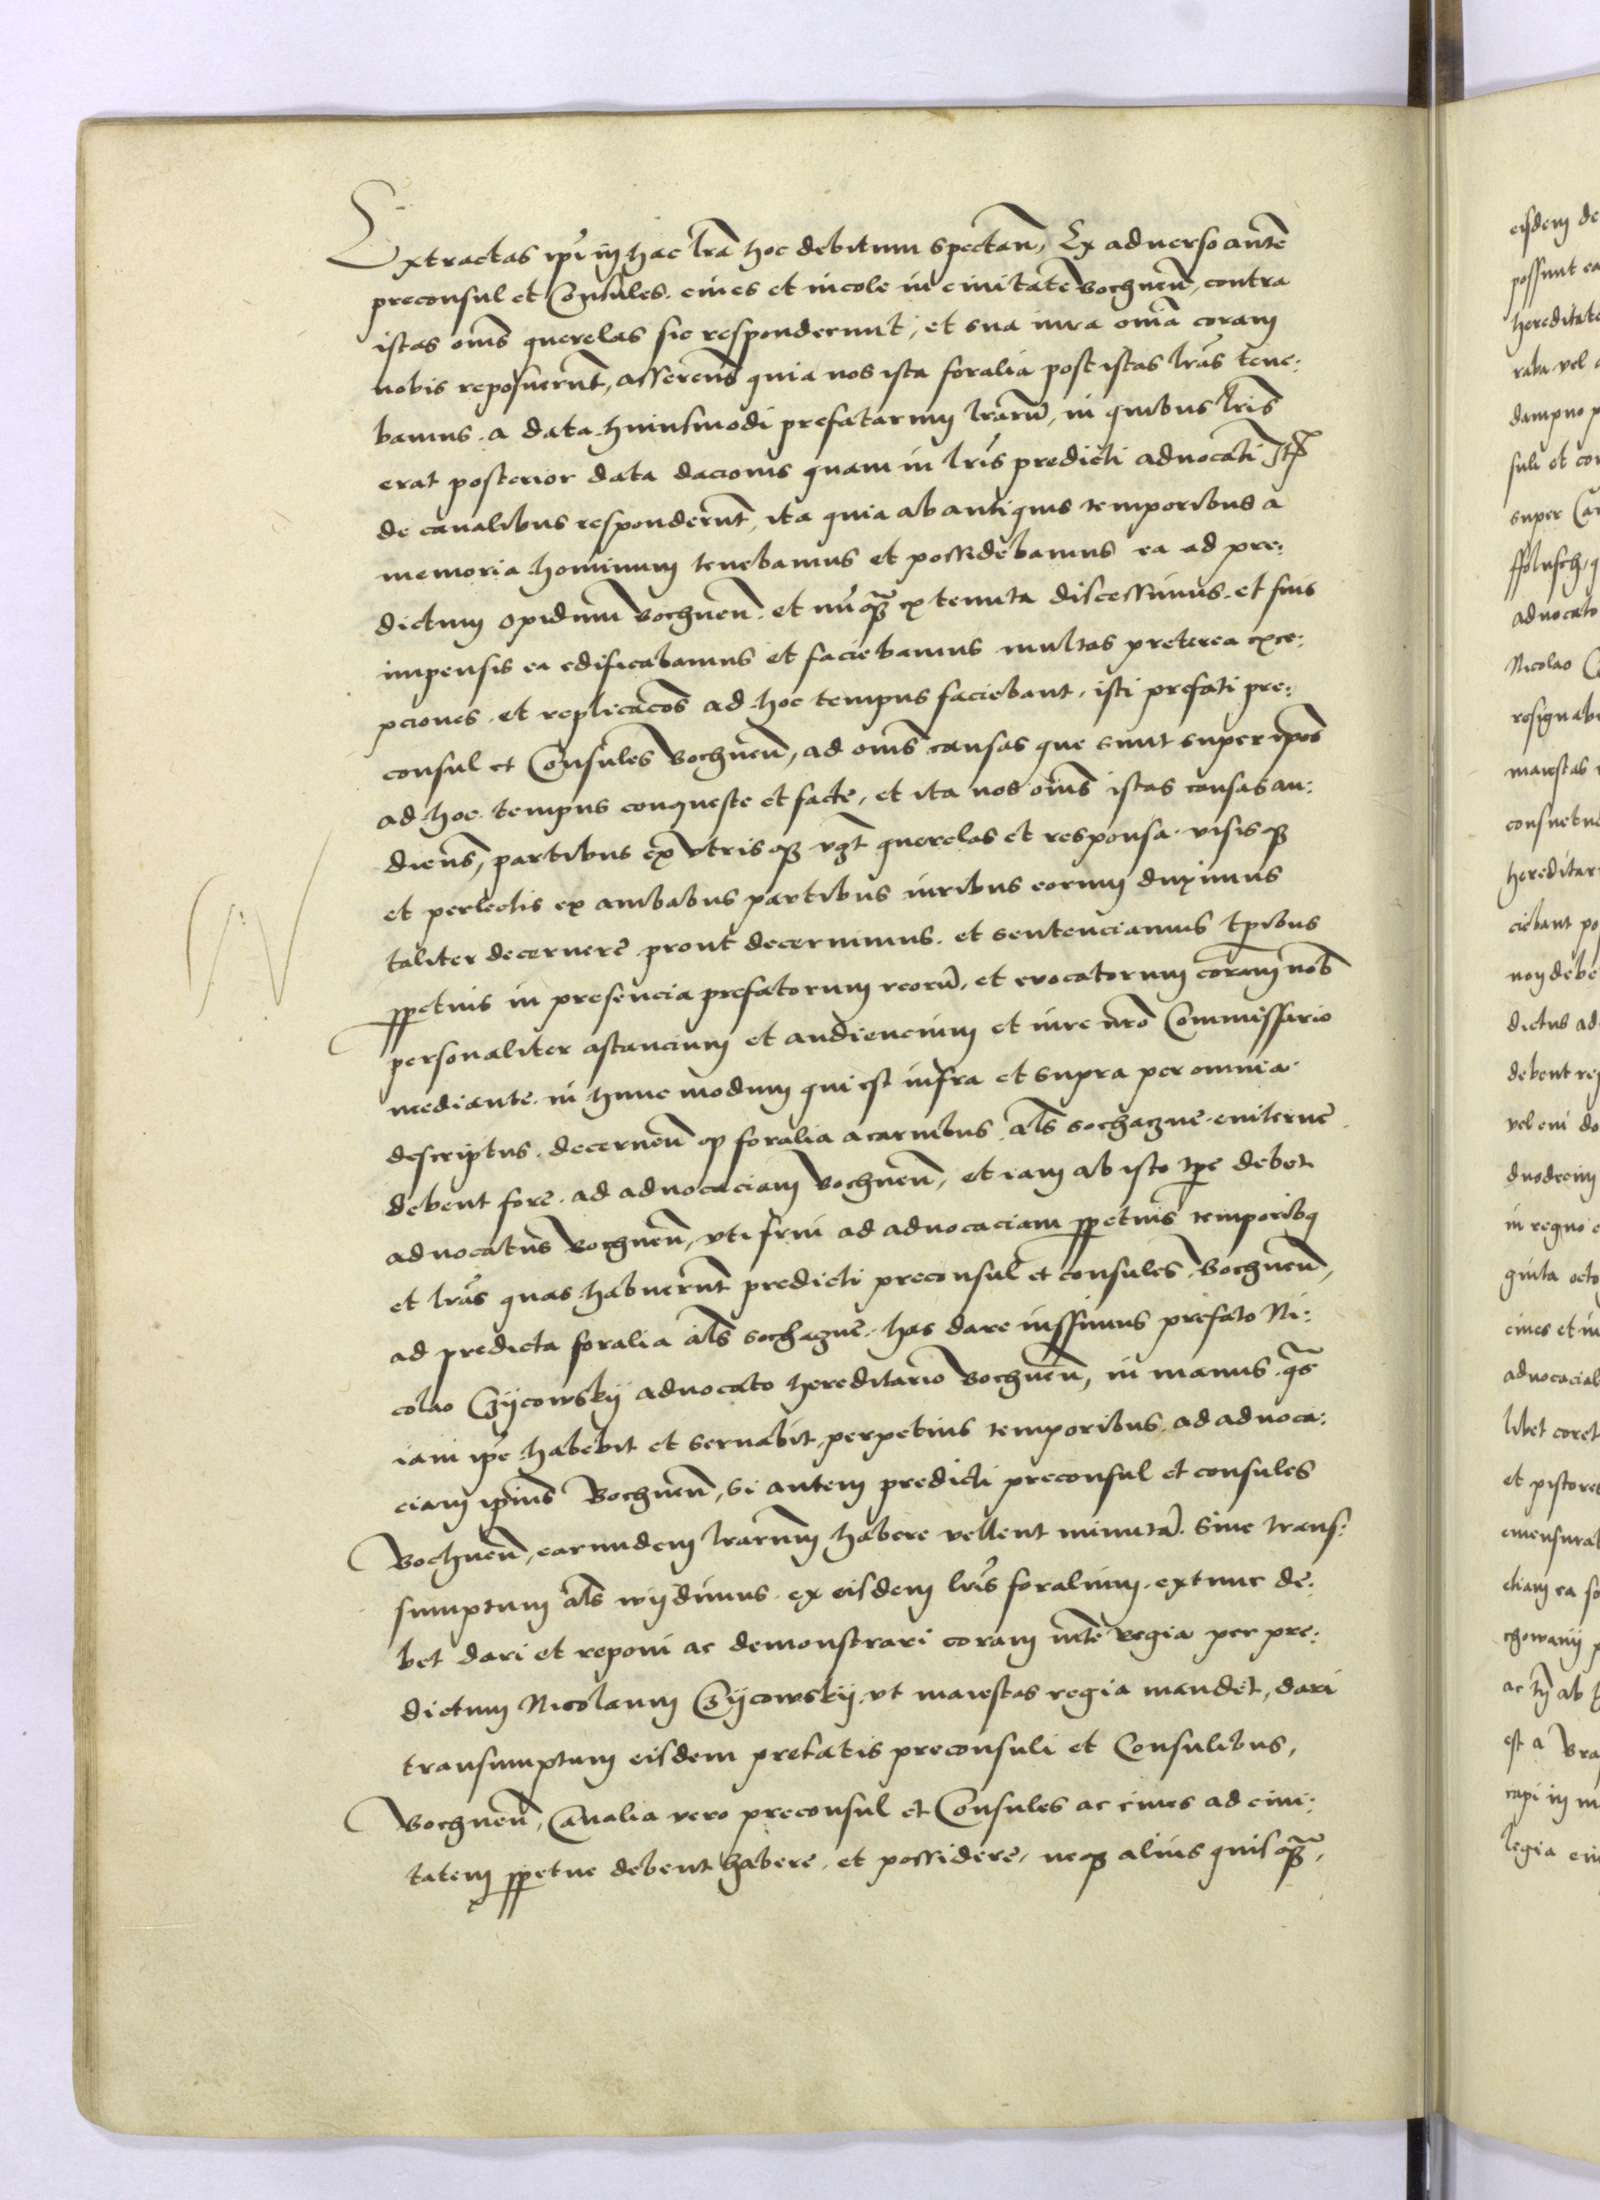 Extractas ipi in hac lrā hoc debitum spectan, Ex adverso autē
preconsul et Consules, cives et incole in civitate Bochnen, contra
istas oms querelas sic responderunt, et sua iura omia coram
nobis reposuerunt, asserens quia nos ista foralia post istas lras tene:
bamus a data huiusmodi prefatarum lrarū, in quibus lris
erat posterior data dacionis quam in lris predicti advocati Itē
de canalibus responderunt, ita quia ab antiquis temporibus a
memoria hominum tenebamus et possidebamus ea ad pre:
dictum opidum Bochnen et nūqȝ ex tenuta discessimus et suis
impensis ea edificabamus et faciebamus multas preterea exce:
pciones et replicacōs ad hoc tempus faciebant, isti prefati pre:
consul et Consules Bochnen, ad oms causas que sunt super ipos
ad hoc tempus conqueste et facte, et ita nos oms istas causas au:
diens, partibus ex vtrisqȝ querelas et responsa visisqȝ
et perlectis ex ambabus partibus iuribus eorum duximus
taliter decernere prout decernimus et sentenciamus tpribus
ppetuis in presencia prefatorum reorū, et evocatorum coram nob
personaliter astancium et audiencium et iure nro Commissario
mediante in hunc modum qui est infra et supra per omnia
descriptus, decernen qȝ foralia a carnibus als sochaczne eviterne
debent fore ad advocaciam Bochnen, et iam ab isto tpe debet
advocatus Bochnen, vti frui ad advocaciam ppetuis temporibȝ
et lras quas habuerunt predicti preconsul et consules Bochnen,
ad predicta foralia als sochaczne has dare iussimus prefato Ni:
colao Czÿcowskÿ advocato hereditario Bochnen, in manus qs
iam ipe habebit et servabit perpetuis temporibus ad advoca:
ciam ipius Bochnen, Si autem predicti preconsul et consules
Bochnen, earundem lrarum habere vellent minutā sive trans:
sumptum als wÿdimus ex eisdem lris foralium extunc de:
bet dari et reponi ac demonstrari coram mte regia per pre:
dictum Nicolaum Czÿcowskÿ, vt maiestas regia mandet, dari
transumptum eisdem prefatis preconsuli et Consulibus,
Bochnen, Canalia vero preconsul et Consules ac cives ad civi:
tatem ppetue debent habere, et possidere, neqȝ alius quisqȝ,